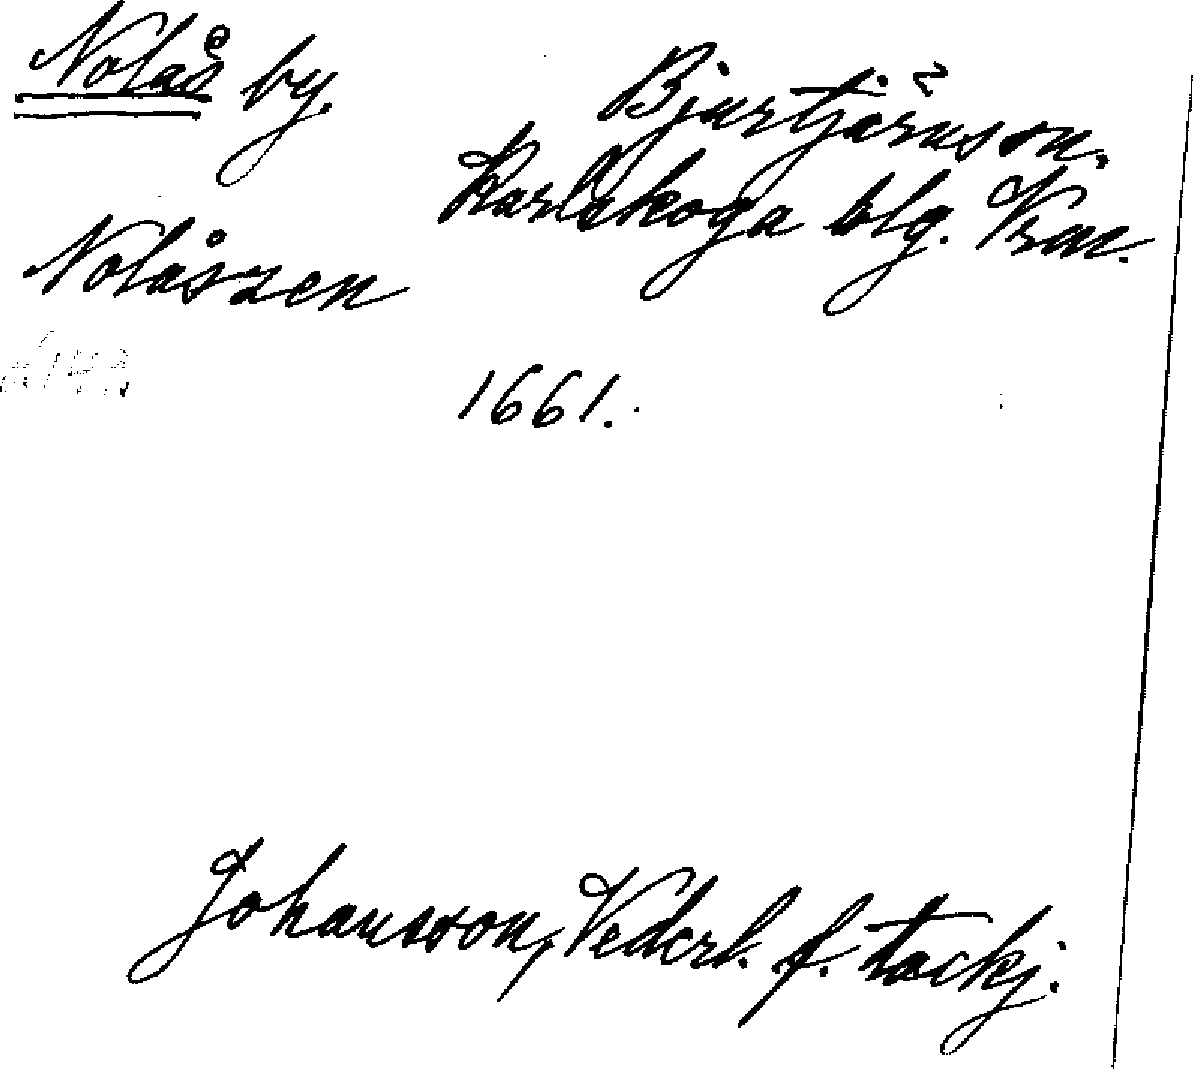 Nolås by.
Bjurtjärnson.
Karlskoga blg. Vrml.
Nolåszen
1661.
Johansson, Vederl. f. tackj.